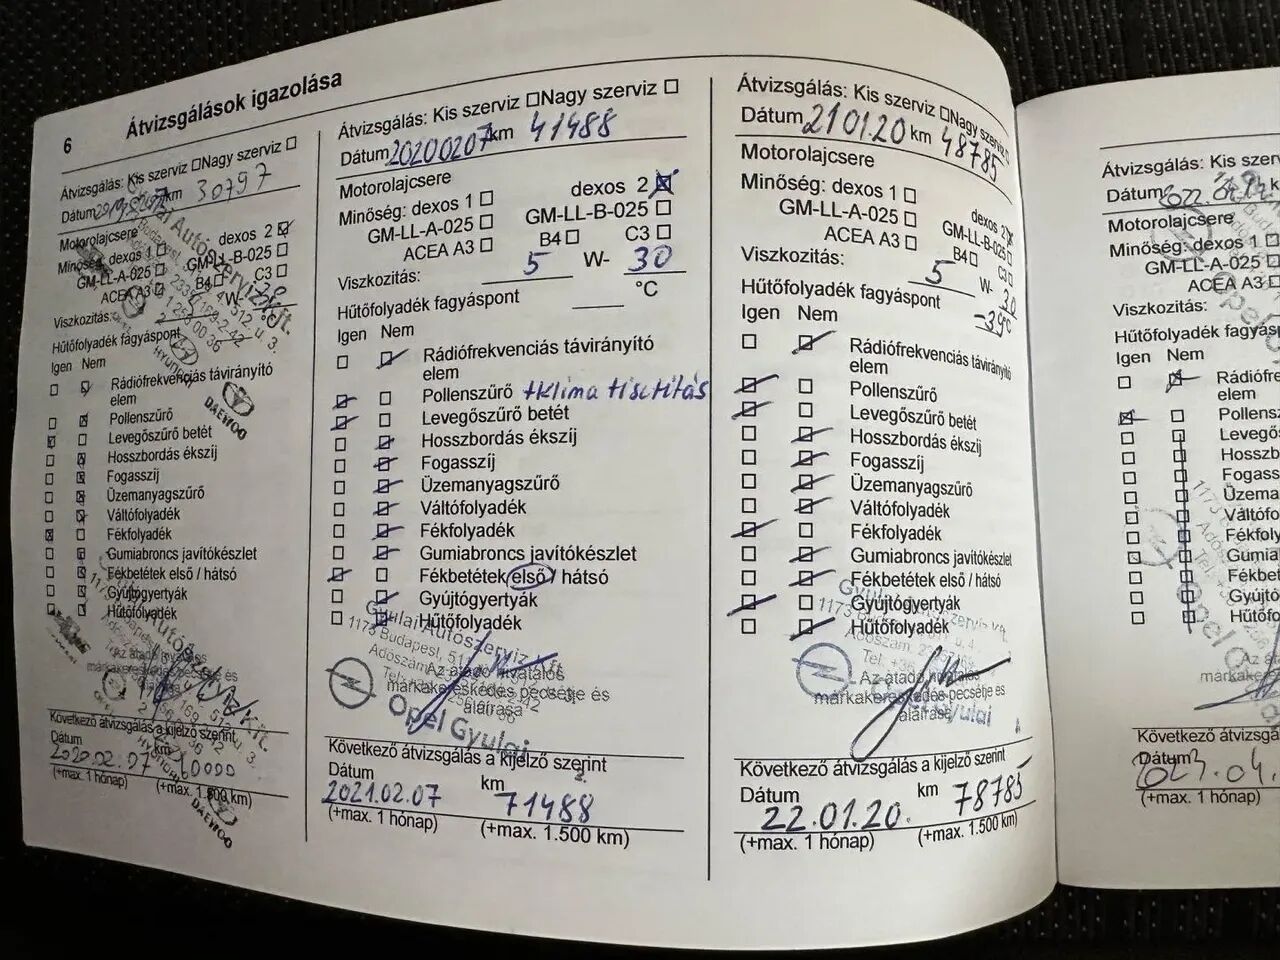 6
Átvizsgálások igazolása
Átvizsgálás: Kis szerviz □ Nagy szerviz □
Dátum km 30797
Motorolajcsere
Minőség: dexos 1 □ dexos 2 ☒
GM-LL-A-025 □ GM-LL-B-025 □
ACEA A3 □ B4 □ C3 □
Viszkozitás: W-
Hűtőfolyadék fagyáspont °C
Igen Nem
Rádiófrekvenciás távirányító
elem
Pollenszűrő
Levegőszűrő betét
Hosszbordás ékszíj
Fogasszíj
Üzemanyagszűrő
Váltófolyadék
Fékfolyadék
Gumiabroncs javítókészlet
Fékbetétek első / hátsó
Gyújtógyertyák
Hűtőfolyadék
Következő átvizsgálás a kijelző szerint
Dátum km
2020.02.07
(+max. 1 hónap) (+max. 1.500 km)
HYUNDAI
DAEWOO
Átvizsgálás: Kis szerviz □ Nagy szerviz □
Dátum 20200207 km 41488
Motorolajcsere
Minőség: dexos 1 □ dexos 2 ☒
GM-LL-A-025 □ GM-LL-B-025 □
ACEA A3 □ B4 □ C3 □
Viszkozitás: 5 W- 30
Hűtőfolyadék fagyáspont °C
Igen Nem
Rádiófrekvenciás távirányító
elem
Pollenszűrő +klima tisztitás
Levegőszűrő betét
Hosszbordás ékszíj
Fogasszíj
Üzemanyagszűrő
Váltófolyadék
Fékfolyadék
Gumiabroncs javítókészlet
Fékbetétek első / hátsó
Gyújtógyertyák
Hűtőfolyadék
Gyulai Autószerviz Kft
1173 Budapest,
Az átadó hivatalos
márkakereskedés pecsétje és
aláírása
Opel Gyulai
Következő átvizsgálás a kijelző szerint
Dátum km
2021.02.07 71488
(+max. 1 hónap) (+max. 1.500 km)
Átvizsgálás: Kis szerviz □ Nagy szerviz □
Dátum 210120 km 48785
Motorolajcsere
Minőség: dexos 1 □ dexos 2 ☒
GM-LL-A-025 □ GM-LL-B-025 □
ACEA A3 □ B4 □ C3 □
Viszkozitás: 5 W- 30
Hűtőfolyadék fagyáspont -39 °C
Igen Nem
Rádiófrekvenciás távirányító
elem
Pollenszűrő
Levegőszűrő betét
Hosszbordás ékszíj
Fogasszíj
Üzemanyagszűrő
Váltófolyadék
Fékfolyadék
Gumiabroncs javítókészlet
Fékbetétek első / hátsó
Gyújtógyertyák
Hűtőfolyadék
Az átadó hivatalos
márkakereskedés pecsétje és
aláírása
Opel Gyulai
Következő átvizsgálás a kijelző szerint
Dátum km
22.01.20. 78785
(+max. 1 hónap) (+max. 1.500 km)
Átvizsgálás: Kis szerv
Dátum
Motorolajcsere
Minőség: dexos 1 □
GM-LL-A-025 □
ACEA A3 □
Viszkozitás:
Hűtőfolyadék fagyás
Igen Nem
Rádiófre
elem
Pollensz
Levegős
Hosszbo
Fogassz
Üzema
Váltófo
Fékfoly
Gumia
Fékbet
Gyújtó
Hűtőfo
Az á
márkake
Következő átvizsgála
Dátum
2023.04.
(+max. 1 hónap)